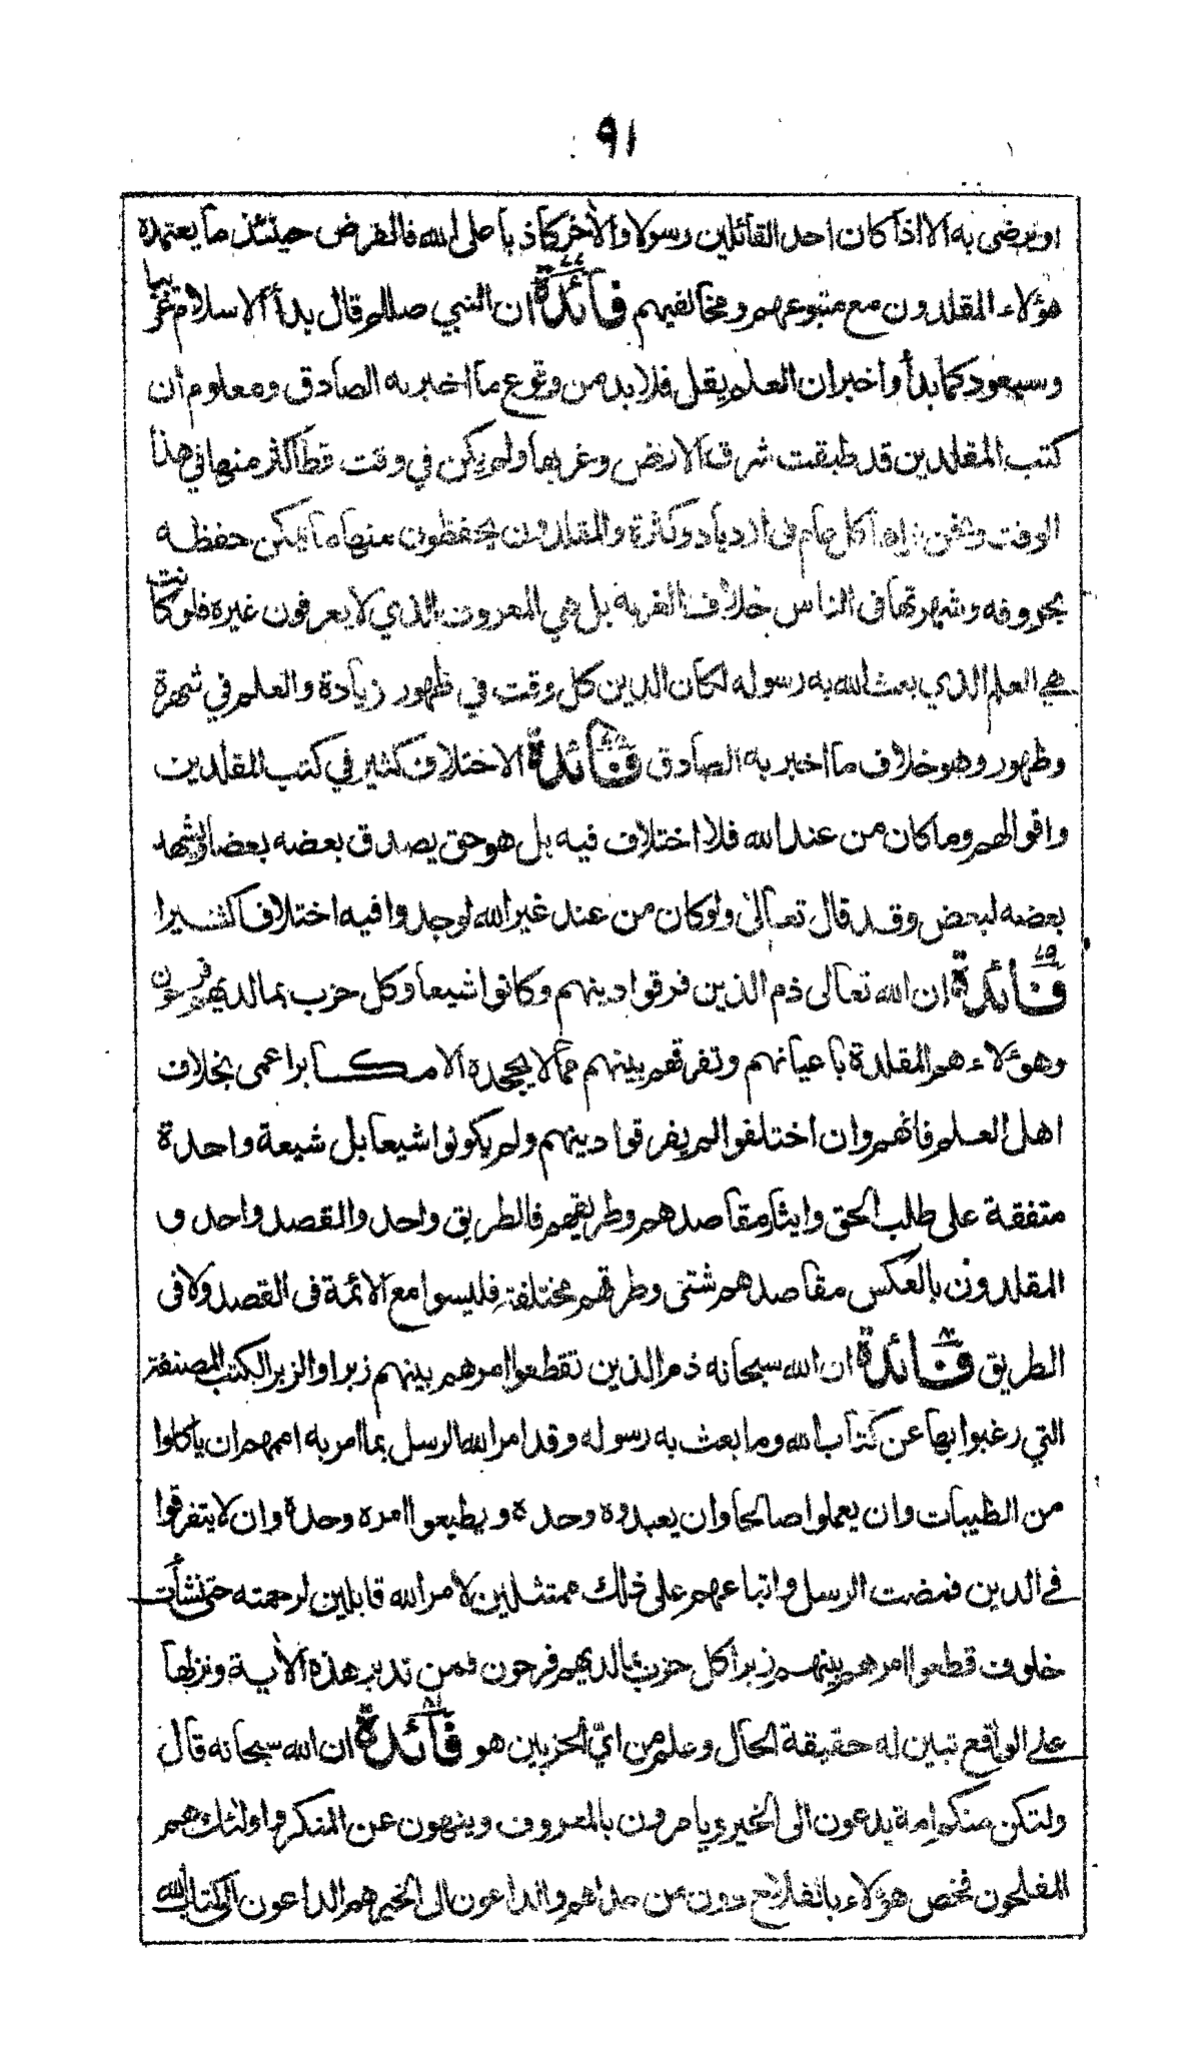 ٩١
او يرضى به الا اذا كان احد القائلين رسولا والأخر كاذبا على الله فالفرض حينئذ ما يعتمده
هؤلاء المقلدون مع متبوعهم ومخالفيهم فائدة ٧٧ ان النبي صللم قال بدأ الاسلام غريبا
وسيعود كما بدأ واخبر ان العلم يقل فلا بد من وقوع ما اخبر به الصادق ومعلوم ان
كتب المقلدين قد طبقت شرق الارض وغربها ولم يكن في وقت قط اكثر منها في هذا
الوقت ونحن نراها كل عام فى ازدياد وكثرة والمقلدون يحفظون منها ما يمكن حفظه
بحروفه وشهرتها فى الناس خلاف الغربة بل هي المعروف الذي لا يعرفون غيره فلو كانت
هي العلم الذي بعث الله به رسوله لكان الدين كل وقت في ظهور زيادة والعلم في شهرة
وظهور وهو خلاف ما اخبر به الصادق فائدة ٧٨ الاختلاف كثير في كتب المقلدين
واقوالهم وما كان من عند الله فلا اختلاف فيه بل هو حق يصدق بعضه بعضا ويشهد
بعضه لبعض وقد قال تعالى ولو كان من عند غير الله لوجدوا فيه اختلافا كثيرا
فائدة ٧٩ ان الله تعالى ذم الذين فرقوا دينهم وكانوا شيعا وكل حزب بما لديهم فرحون
وهؤلاء هم المقلدة باعيانهم وتفرقهم بينهم مما لا يجحده الا مكابر اعمى بخلاف
اهل العلم فانهم وان اختلفوا لم يفرقوا دينهم ولم يكونوا شيعا بل شيعة واحدة
متفقة على طلب الحق وايثار مقاصدهم وطريقهم فالطريق واحد والمقصد واحد و
المقلدون بالعكس مقاصدهم شتى وطرقهم مختلفة فليسوا مع الائمة فى القصد ولا فى
الطريق فائدة ٨٠ ان الله سبحانه ذم الذين تقطعوا امرهم بينهم زبرا والزبر الكتب المصنفة
التي رغبوا بها عن كتاب الله وما بعث به رسوله وقد امر الله الرسل بما امر به اممهم ان ياكلوا
من الطيبات وان يعملوا صالحا وان يعبدوه وحده ويطيعوا امره وحدة وان لا يتفرقوا
في الدين فمضت الرسل واتباعهم على ذلك ممتثلين لامر الله قابلين لرحمته حتى نشأت
خلوف قطعوا امرهم بينهم زبرا كل حزب بما لديهم فرحون فمن تدبر هذه الأية ونزلها
على الواقع تبين له حقيقة الحال وعلم من ايّ الحزبين هو فائدة ٨١ ان الله سبحانه قال
ولتكن منكم امة يدعون الى الخير ويامرون بالمعروف وينهون عن المنكر واولئك هم
المفلحون فخص هؤلاء بالفلاح دون من عداهم والداعون الى الخير هم الداعون الى كتاب الله